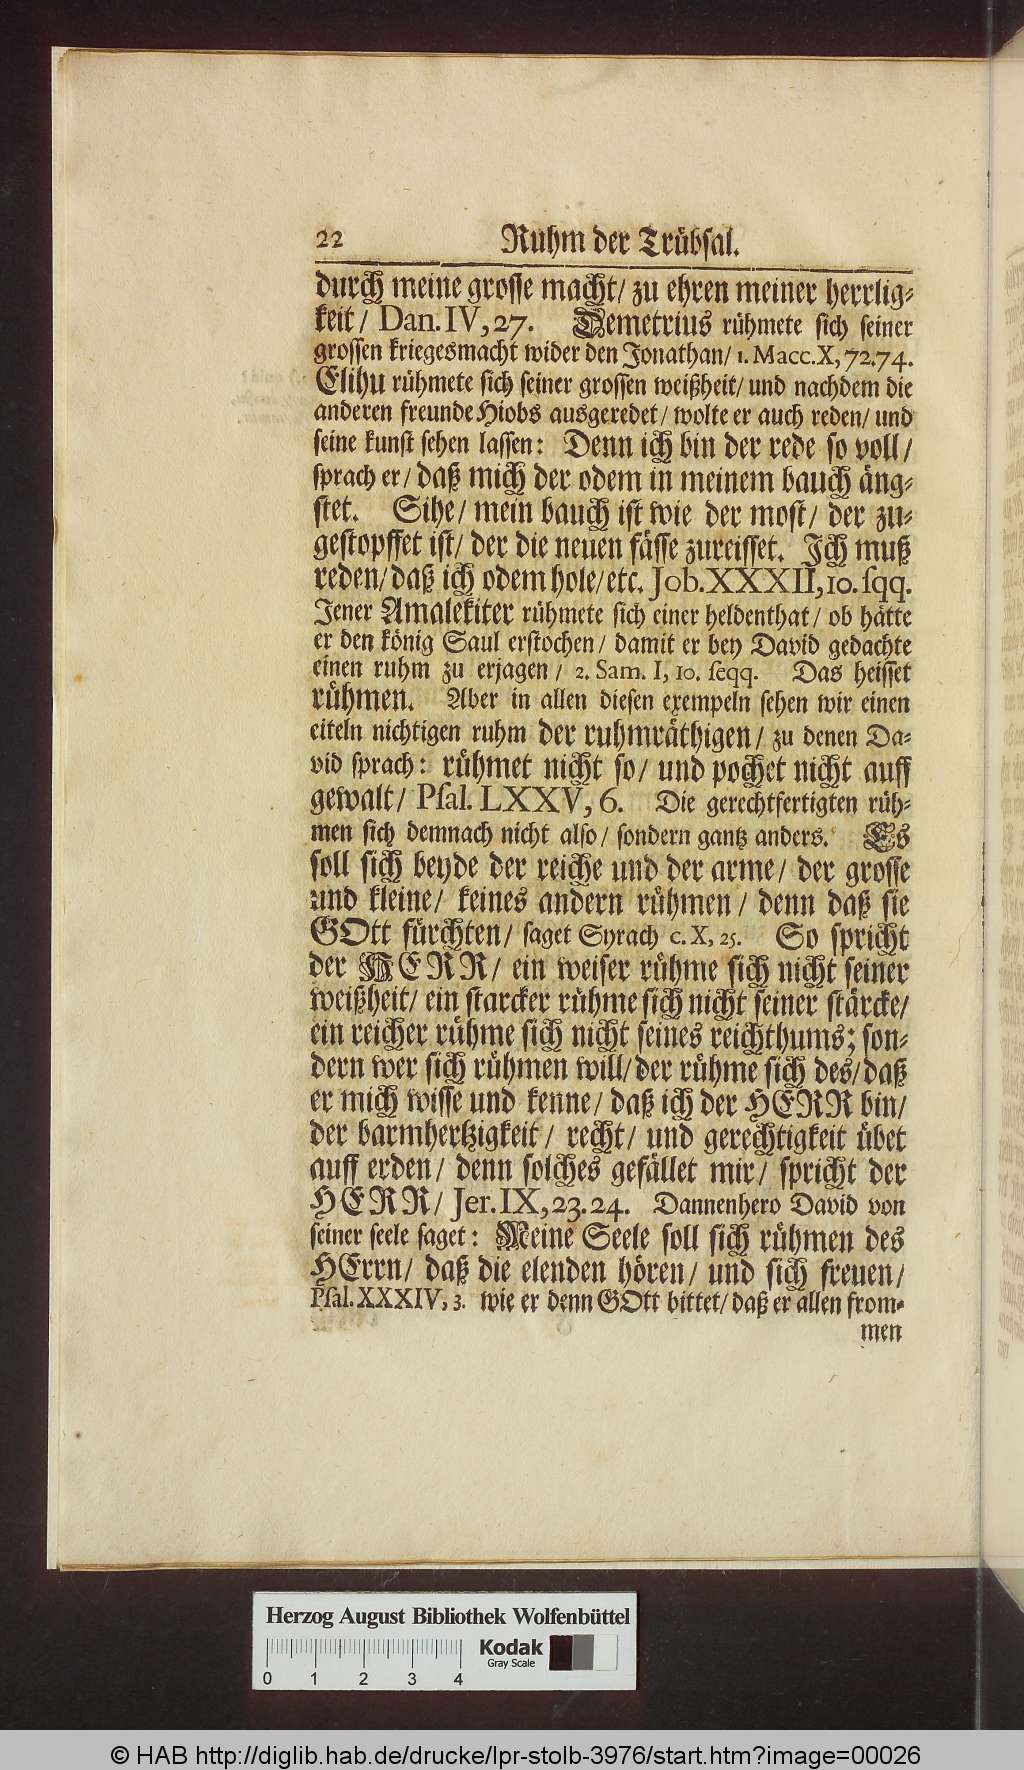 22 Ruhm der Trübsal.
durch meine grosse macht/ zu ehren meiner herrlig-
keit/ Dan. IV, 27. Demetrius rühmete sich seiner
grossen kriegesmacht wider den Jonathan/ 1. Macc. X, 72.74.
Elihu rühmete sich seiner grossen weißheit/ und nachdem die
anderen freunde Hiobs ausgeredet/ wolte er auch reden/ und
seine kunst sehen lassen: Denn ich bin der rede so voll/
sprach er/ daß mich der odem in meinem bauch äng-
stet. Sihe/ mein bauch ist wie der most/ der zu-
gestopffet ist/ der die neuen fässe zureisset. Ich muß
reden/ daß ich odem hole/ etc. Job. XXXII, 10. sqq.
Jener Amalekiter rühmete sich einer heldenthat/ ob hätte
er den könig Saul erstochen/ damit er bey David gedachte
einen ruhm zu erjagen/ 2. Sam. I, 10. seqq. Das heisset
rühmen. Aber in allen diesen exempeln sehen wir einen
eiteln nichtigen ruhm der ruhmräthigen/ zu denen Da-
vid sprach: rühmet nicht so/ und pochet nicht auff
gewalt/ Psal. LXXV, 6. Die gerechtfertigten rüh-
men sich demnach nicht also/ sondern gantz anders. Es
soll sich beyde der reiche und der arme/ der grosse
und kleine/ keines andern rühmen/ denn daß sie
GOtt fürchten/ saget Syrach c. X, 25. So spricht
der HERR/ ein weiser rühme sich nicht seiner
weißheit/ ein starcker rühme sich nicht seiner stärcke/
ein reicher rühme sich nicht seines reichthums; son-
dern wer sich rühmen will/ der rühme sich des/ daß
er mich wisse und kenne/ daß ich der HERR bin/
der barmhertzigkeit/ recht/ und gerechtigkeit übet
auff erden/ denn solches gefället mir/ spricht der
HERR/ Jer. IX, 23. 24. Dannenhero David von
seiner seele saget: Meine Seele soll sich rühmen des
HErrn/ daß die elenden hören/ und sich freuen/
Psal. XXXIV, 3. wie er denn GOtt bittet/ daß er allen from-
men
Herzog August Bibliothek Wolfenbüttel
Kodak
Gray Scale
0 1 2 3 4
© HAB http://diglib.hab.de/drucke/lpr-stolb-3976/start.htm?image=00026